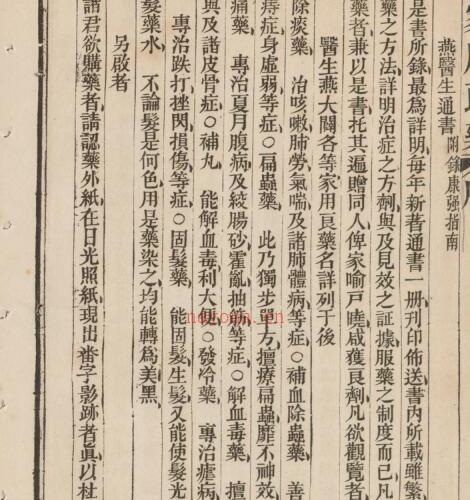 燕醫生通書 附錄康强指南
是書所錄最為詳明每年新著通書一册刊印佈送書內所載雖繁
藥之方法詳明治症之方劑與及見效之証據服藥之制度而已凡
藥者兼以是書托其遍贈同人俾家喻戶曉咸獲良劑凡欲觀覽者
醫生燕大闢各等家用良藥名詳列于後
除痰藥 治咳嗽肺勞氣喘及諸肺體病等症○補血除蟲藥 善
痔症身虛弱等症○扁蟲藥 此乃獨步單方擅療扁蟲靡不神效
痛藥 專治夏月腹病及絞腸砂霍亂抽筋等症○解血毒藥 擅
與及諸皮骨症○補丸 能解血毒利大便○發冷藥 專治瘧病
專治跌打挫閃損傷等症○固髮藥 能固髮生髮又能使髮光
髮藥水 不論髮是何色用是藥染之均能轉為美黑
另啟者
諸君欲購藥者請認藥外紙在日光照紙現出番字影跡者眞以杜